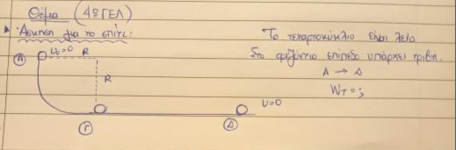 Θέμα (4ο ΓΕΛ)
Άσκηση για το σπίτι:
Το τεταρτοκύκλιο είναι λείο
Στο οριζόντιο επίπεδο υπάρχει τριβή.
A → Δ
W_T = ;
υ₀=0
R
A
R
υ=0
Γ
Δ